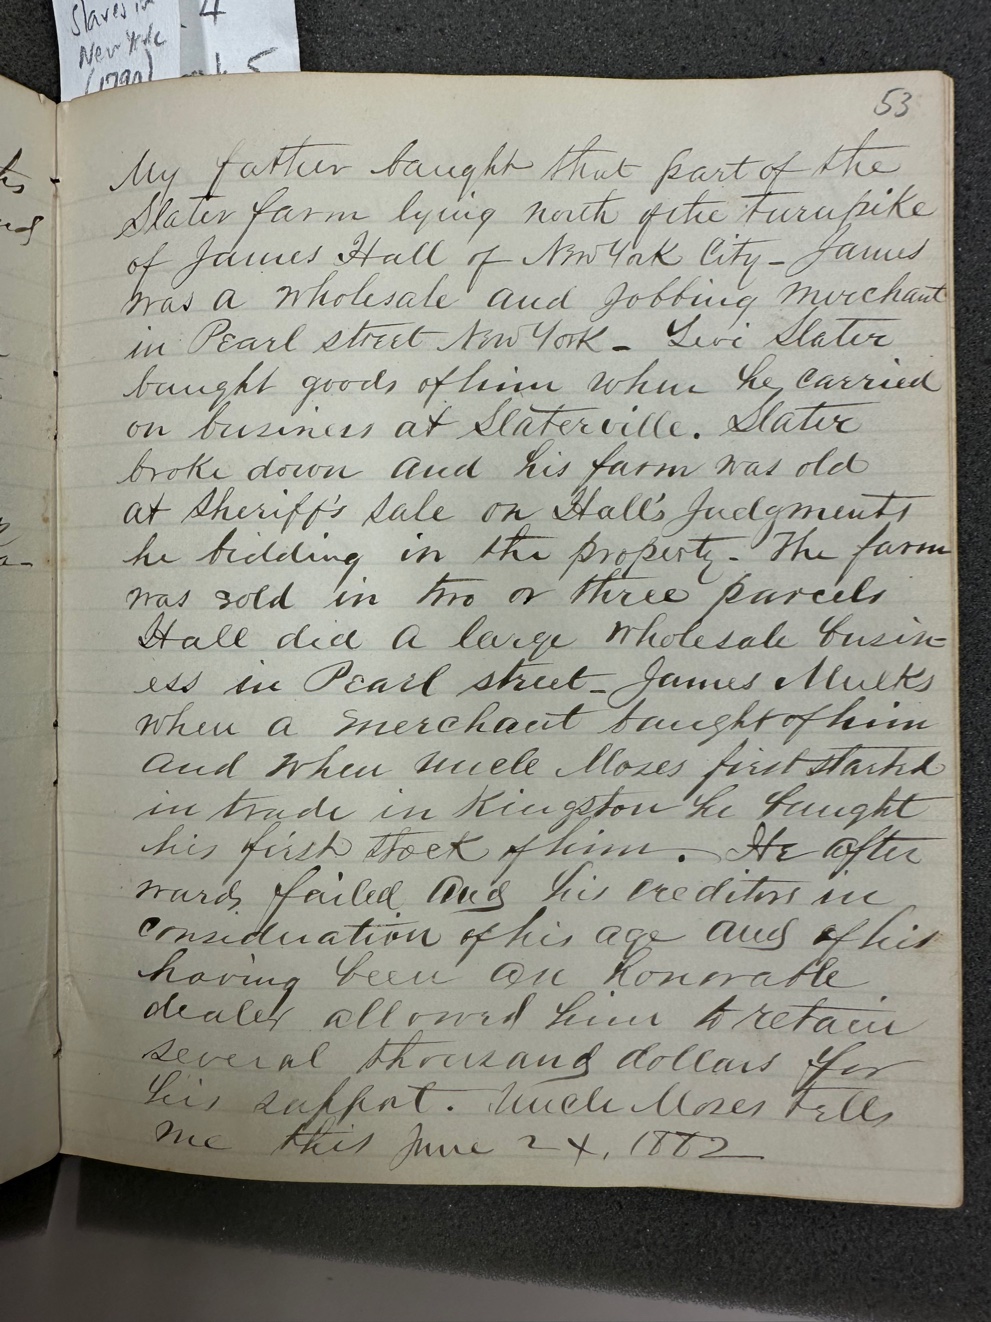 Slaves in
New York 4
(1790) 5
53
My father baught that part of the
Slater farm lying north of the turnpike
of James Hall of New York City - James
was a wholesale and Jobbing merchant
in Pearl street New York - Levi Slater
baught goods of him when he carried
on business at Slaterville. Slater
broke down and his farm was old
at Sheriff's sale on Hall's Judgments
he bidding in the property - The farm
was sold in two or three parcels
Hall did a large wholesale busin=
ess in Pearl street - James Mulks
when a merchant baught of him
and when uncle Moses first started
in trade in Kingston he baught
his first stock of him. He after
wards failed and his creditors in
consideration of his age and of his
having been an honorable
dealer allowed him to retain
several thousand dollars for
his support. Uncle Moses tells
me this June 24, 1882